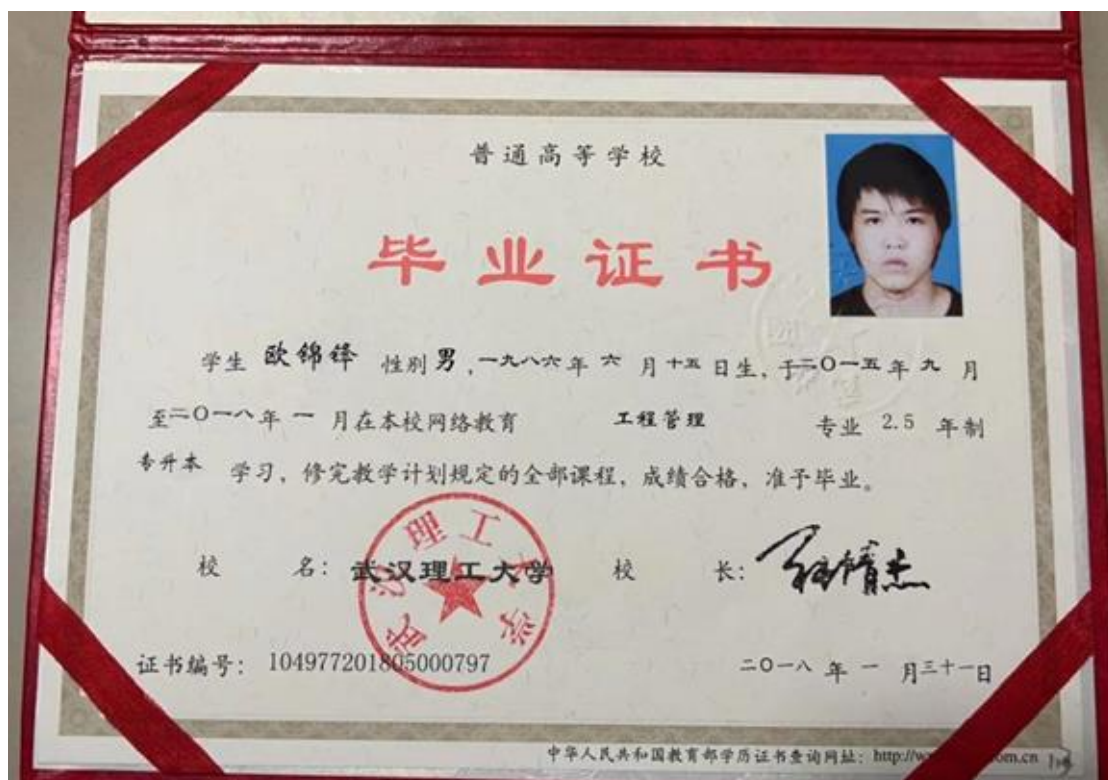 普通高等学校
毕业证书
学生 欧锦锋 性别 男，一九八六年 六 月 十五 日生，于二〇一五年 九 月
至二〇一八年 一 月在本校网络教育 工程管理 专业 2.5 年制
专升本 学习，修完教学计划规定的全部课程，成绩合格，准予毕业。
校 名：武汉理工大学 校 长：
武汉理工大学
证书编号：104977201805000797 二〇一八 年 一 月三十一日
中华人民共和国教育部学历证书查询网址：http://w